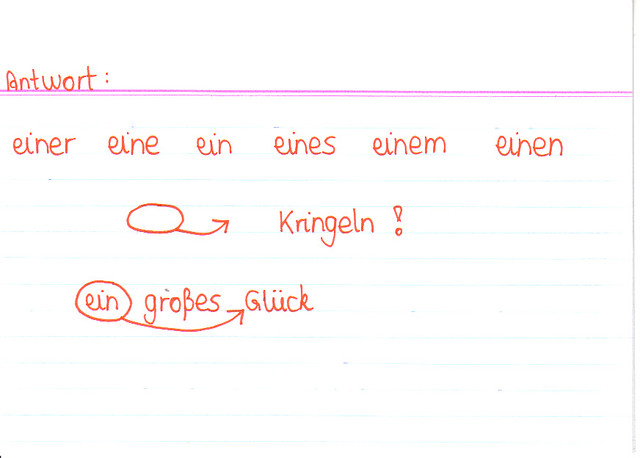 Antwort:
einer eine ein eines einem einen
Kringeln!
ein großes Glück